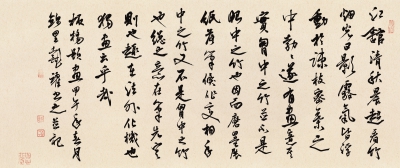 江館清秋晨起看竹
烟光日影露氣皆浮
動於疎枝密葉之
中勃勃遂有畫意其
實胸中之竹並不是
眼中之竹也因而磨墨展
紙落筆倏作變相手
中之竹又不是胸中之竹
也總之意在筆先定
則也趣在法外化機也
獨畫云乎哉
板橋題畫甲午年春月